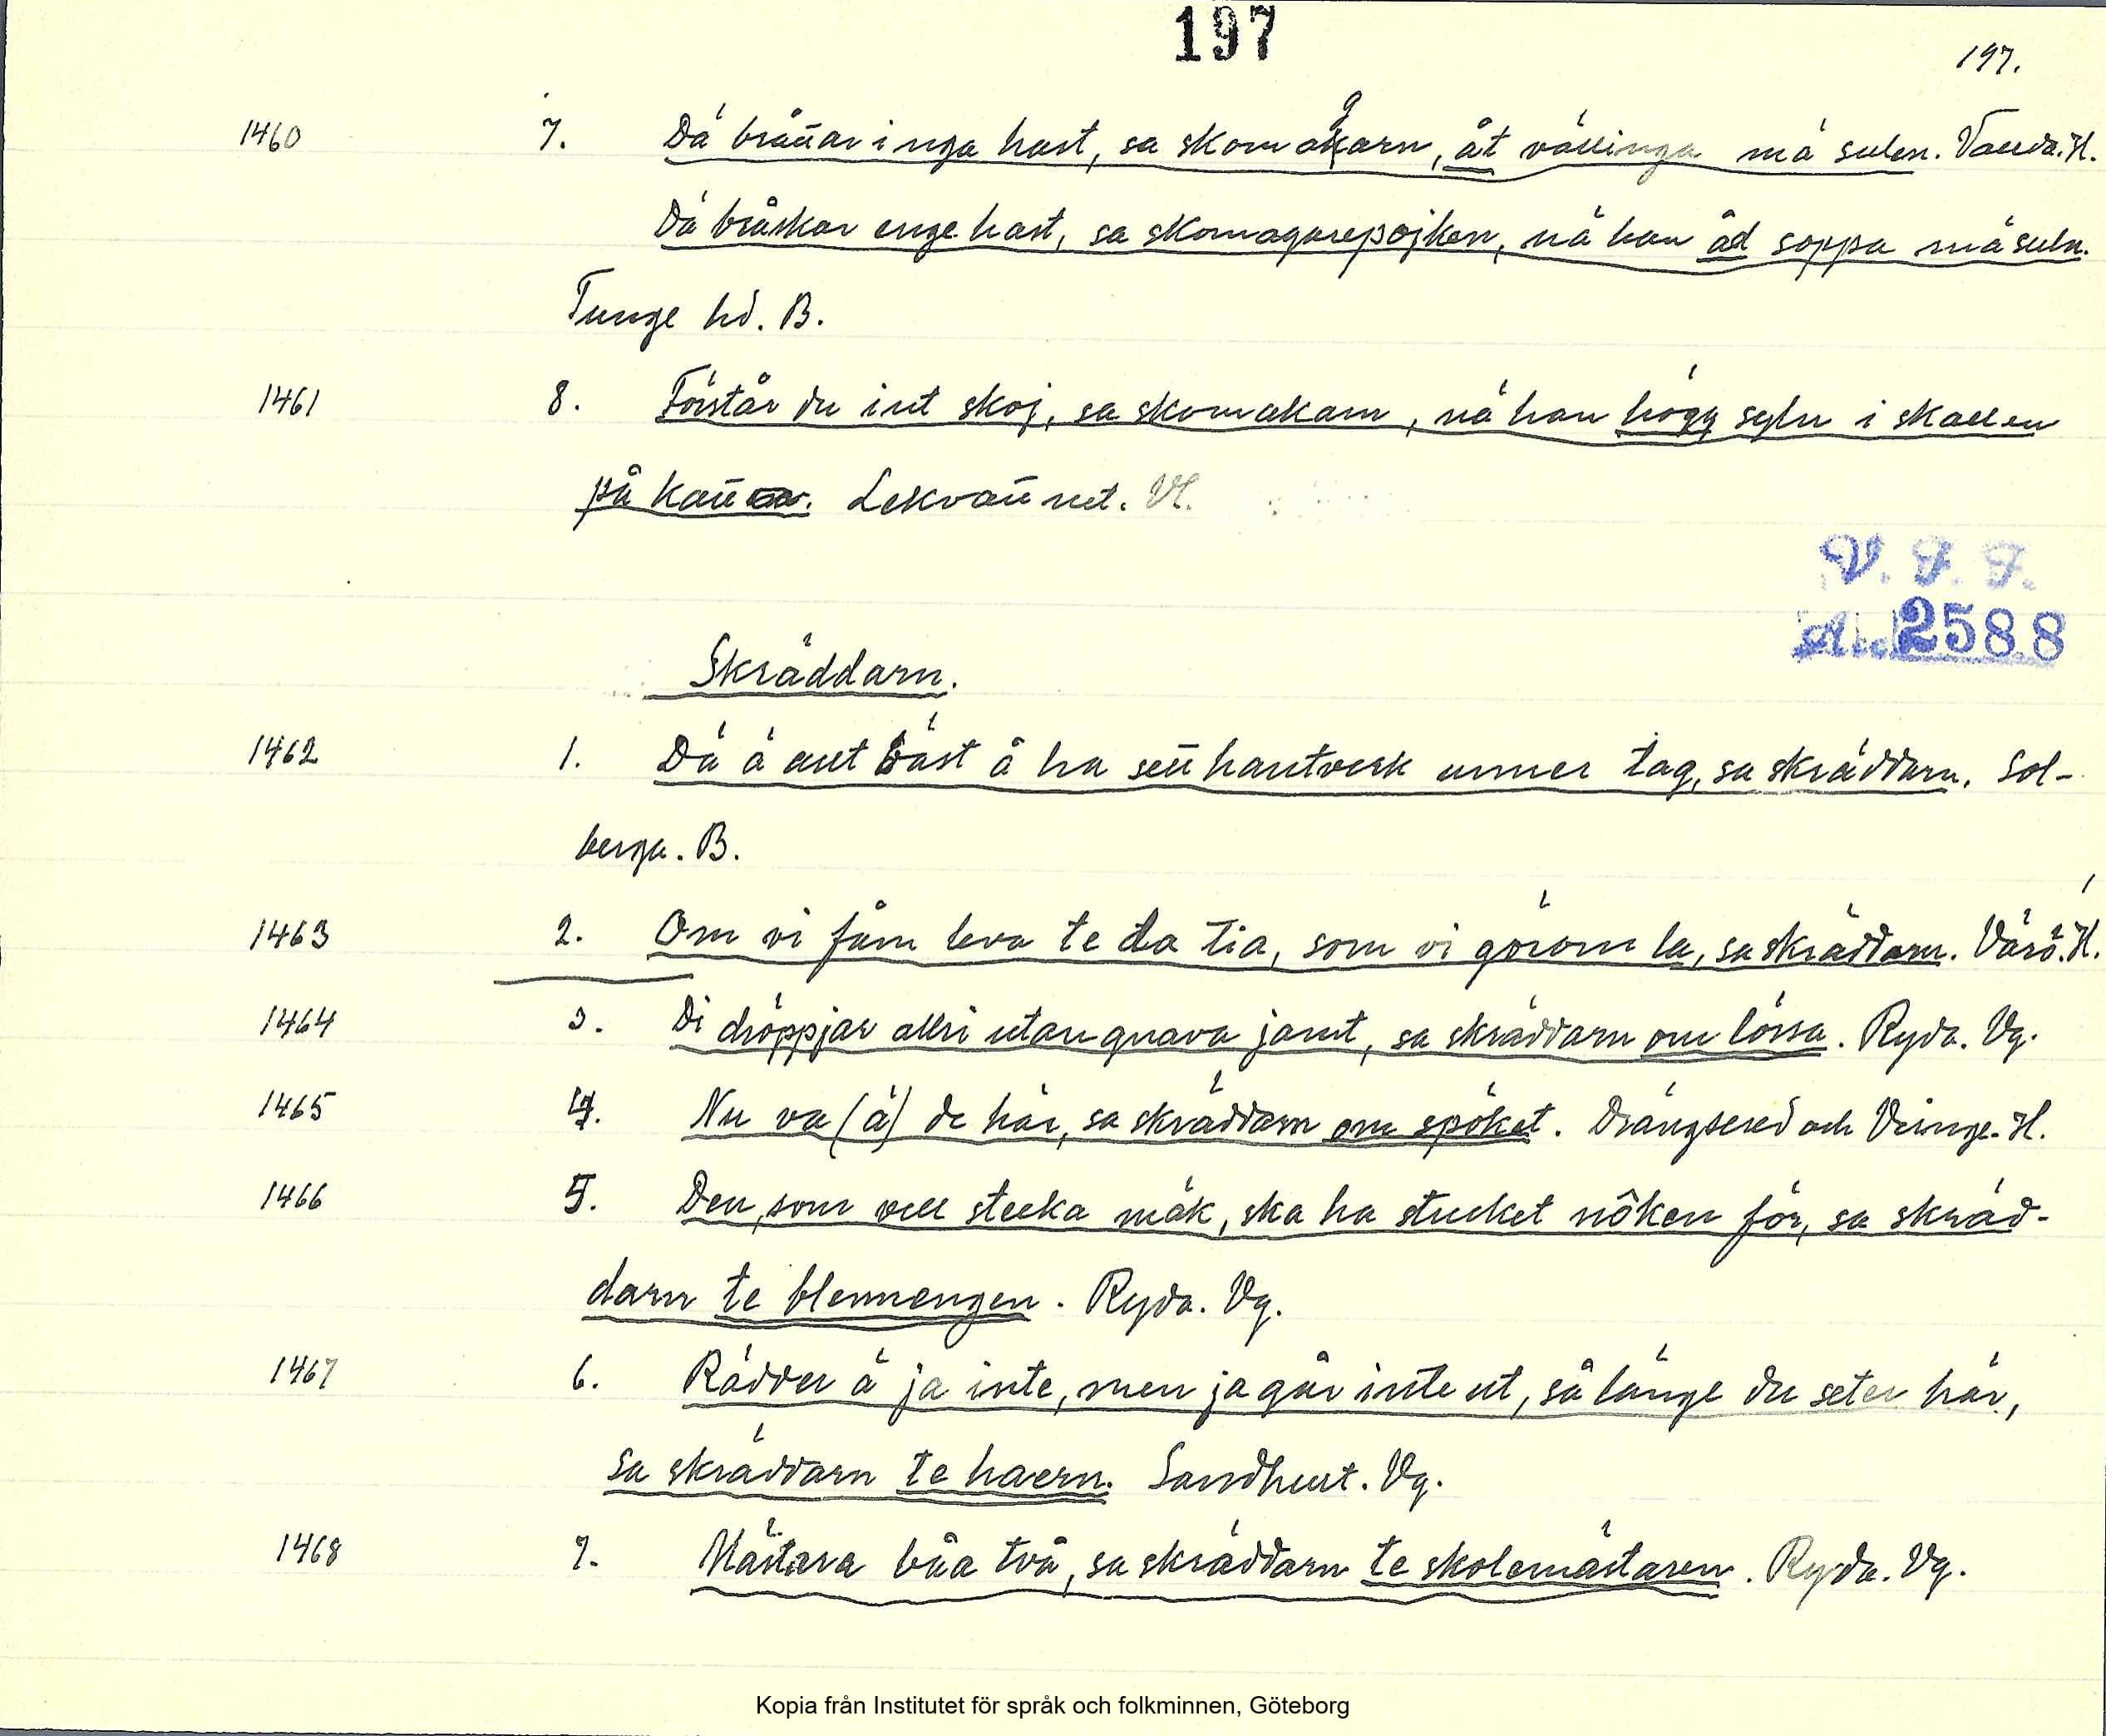 197
197.
1460 7. Dä brånnar inga hast, sa skomagarn, åt vällinga mä sulen. Valda. H.
Dä bråskar enge hast, sa skomagarepojken, nä han åd soppa mä suln.
Tunge hd. B.
1461 8. Förstår du int skoj, sa skomakarn, nä han högg syln i skallen
på kann. Lekvattnet. Vl.
V. F. F.
Acc 2588
Skräddarn.
1462 1. Dä ä allt bäst å ha sett hantverk unner tag, sa skräddarn. Sol-
berga. B.
1463 2. Om vi fåm leva te da tia, som vi görom la, sa skräddarn. Värö. H.
1464 3. Di dröppjar allri utan gnava jamt, sa skräddarn om lössa. Ryda. Vg.
1465 4. Nu va (ä) de här, sa skräddarn om spöket. Drängsered och Veinge. H.
1466 5. Den, som vell stecka mäk, ska ha stucket nôken för, sa skräd-
darn te blenmengen. Ryda. Vg.
1467 6. Rädder ä ja inte, men ja går inte ut, så länge du seter här,
sa skräddarn te haern. Sandhult. Vg.
1468 7. Mästara båa två, sa skräddarn te skolemästaren. Ryda. Vg.
Kopia från Institutet för språk och folkminnen, Göteborg